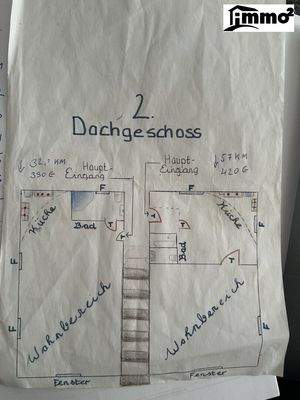 immo²
2.
Dachgeschoss
32,² KM
390 €
Haupt-
Eingang
Haupt-
Eingang
57 KM
420 €
F
F
Küche
Bad
T
T
T
T
T
Bad
Küche
F
F
F
F
F
Wohnbereich
Wohnbereich
Fenster
Fenster